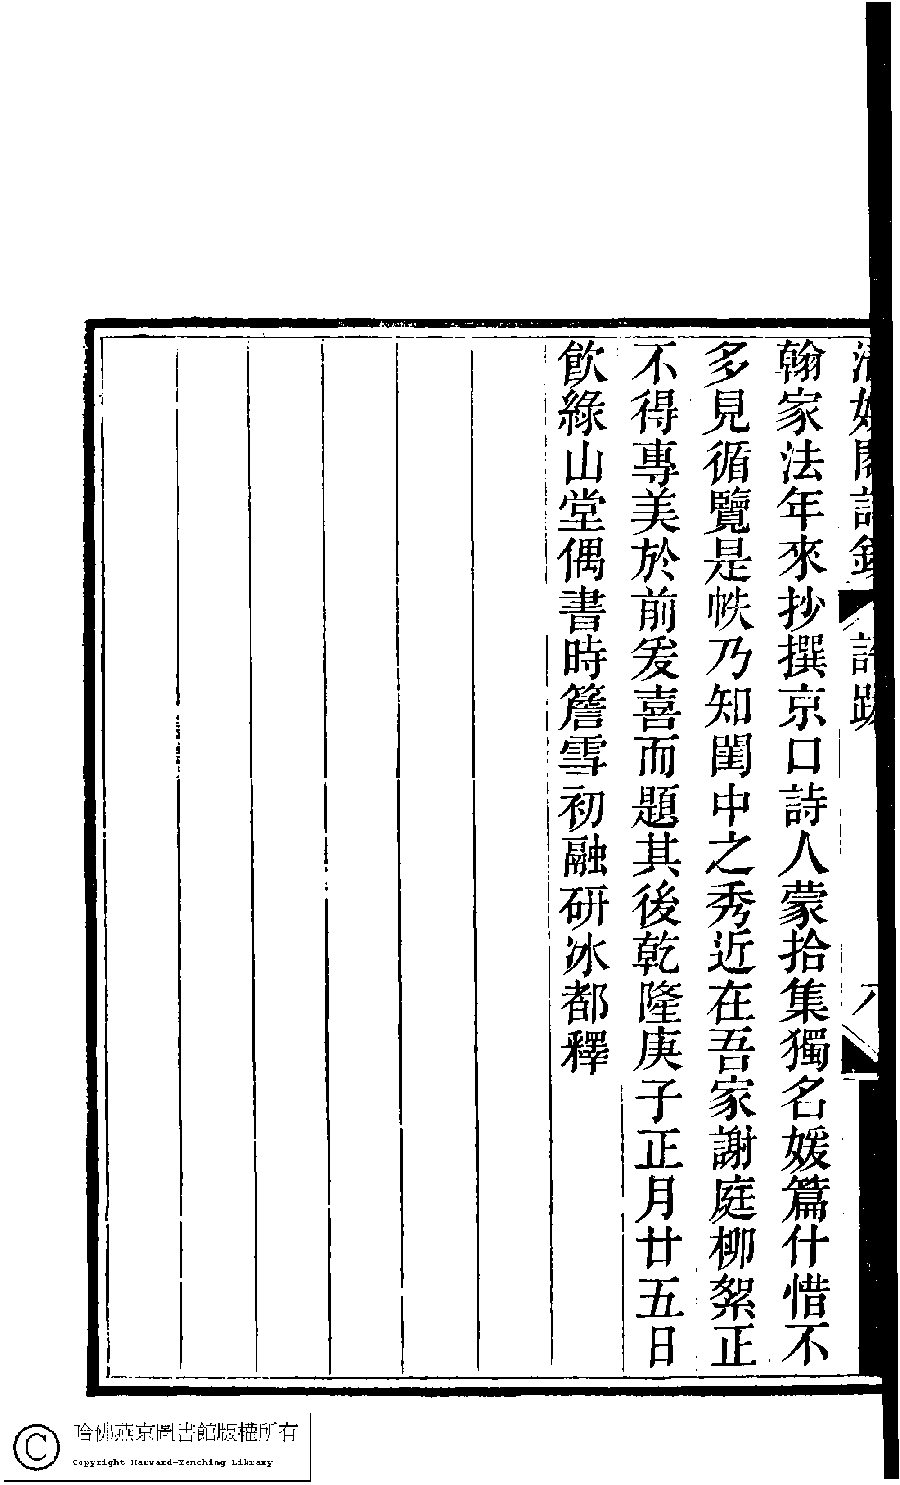 翰家法年來抄撰京口詩人蒙拾集獨名媛篇什惜不
多見循覽是帙乃知閨中之秀近在吾家謝庭柳絮正
不得專美於前爰喜而題其後乾隆庚子正月廿五日
飲綠山堂偶書時簷雪初融研冰都釋
哈佛燕京圖書館版權所有
Copyright Harvard-Yenching Library